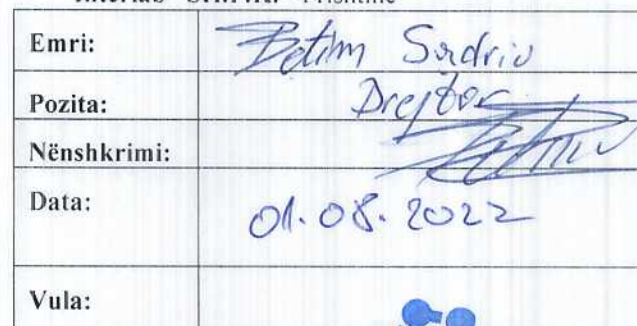 Prishtinë
Emri: Betim Sadriu
Pozita: Drejtor
Nënshkrimi:
Data: 01.08.2022
Vula: